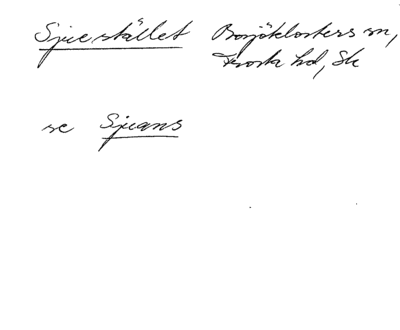 Sjuestället Bosjöklosters sn,
Frosta hd, Sk
se Sjuans